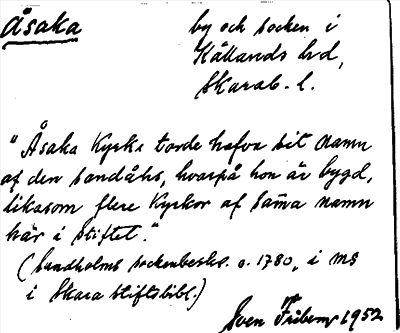 Åsaka
by och socken i
Kållands hd,
Skarab. l.
"Åsaka Kyrka torde hafva sit namn
af den sandåhs, hvarpå hon är bygd,
likasom flere Kyrkor af sam̄a namn
här i stiftet."
(Sundholms sockenbeskr. o. 1780, i ms
i Skara stiftsbibl.)
Sven 1952